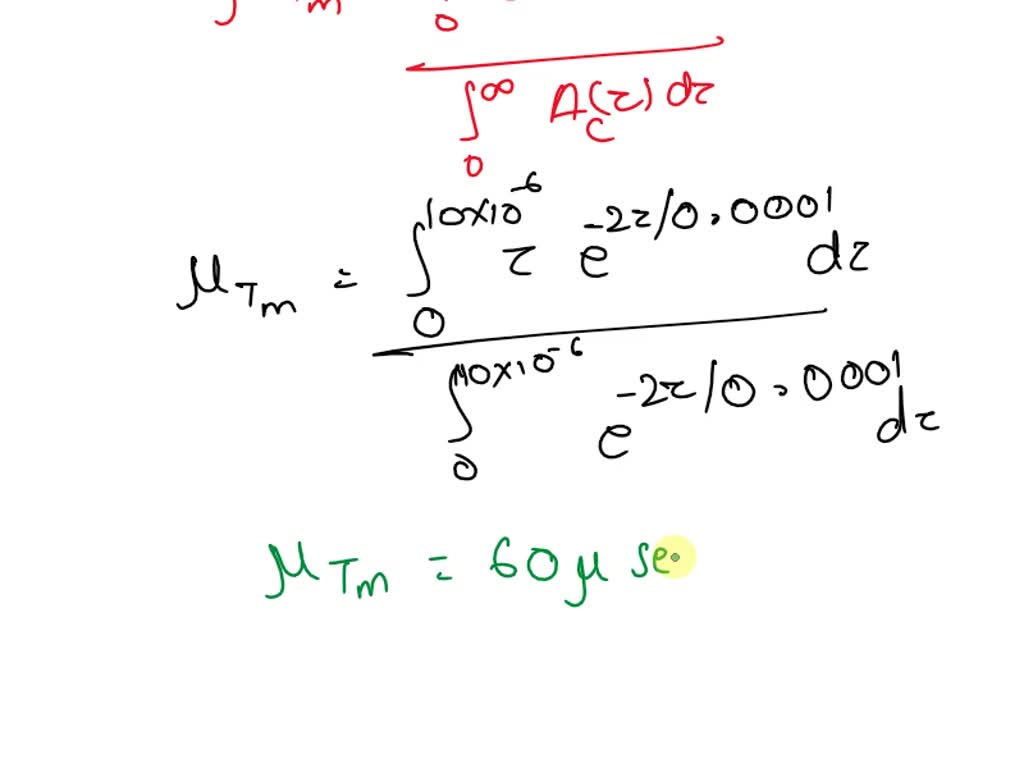 m 0
∫₀^∞ A_c(τ) dτ
μ_Tm = ∫₀^10×10⁻⁶ τ e^-2τ/0.0001 dτ
∫₀^10×10⁻⁶ e^-2τ/0.0001 dτ
μ_Tm = 60 μ se